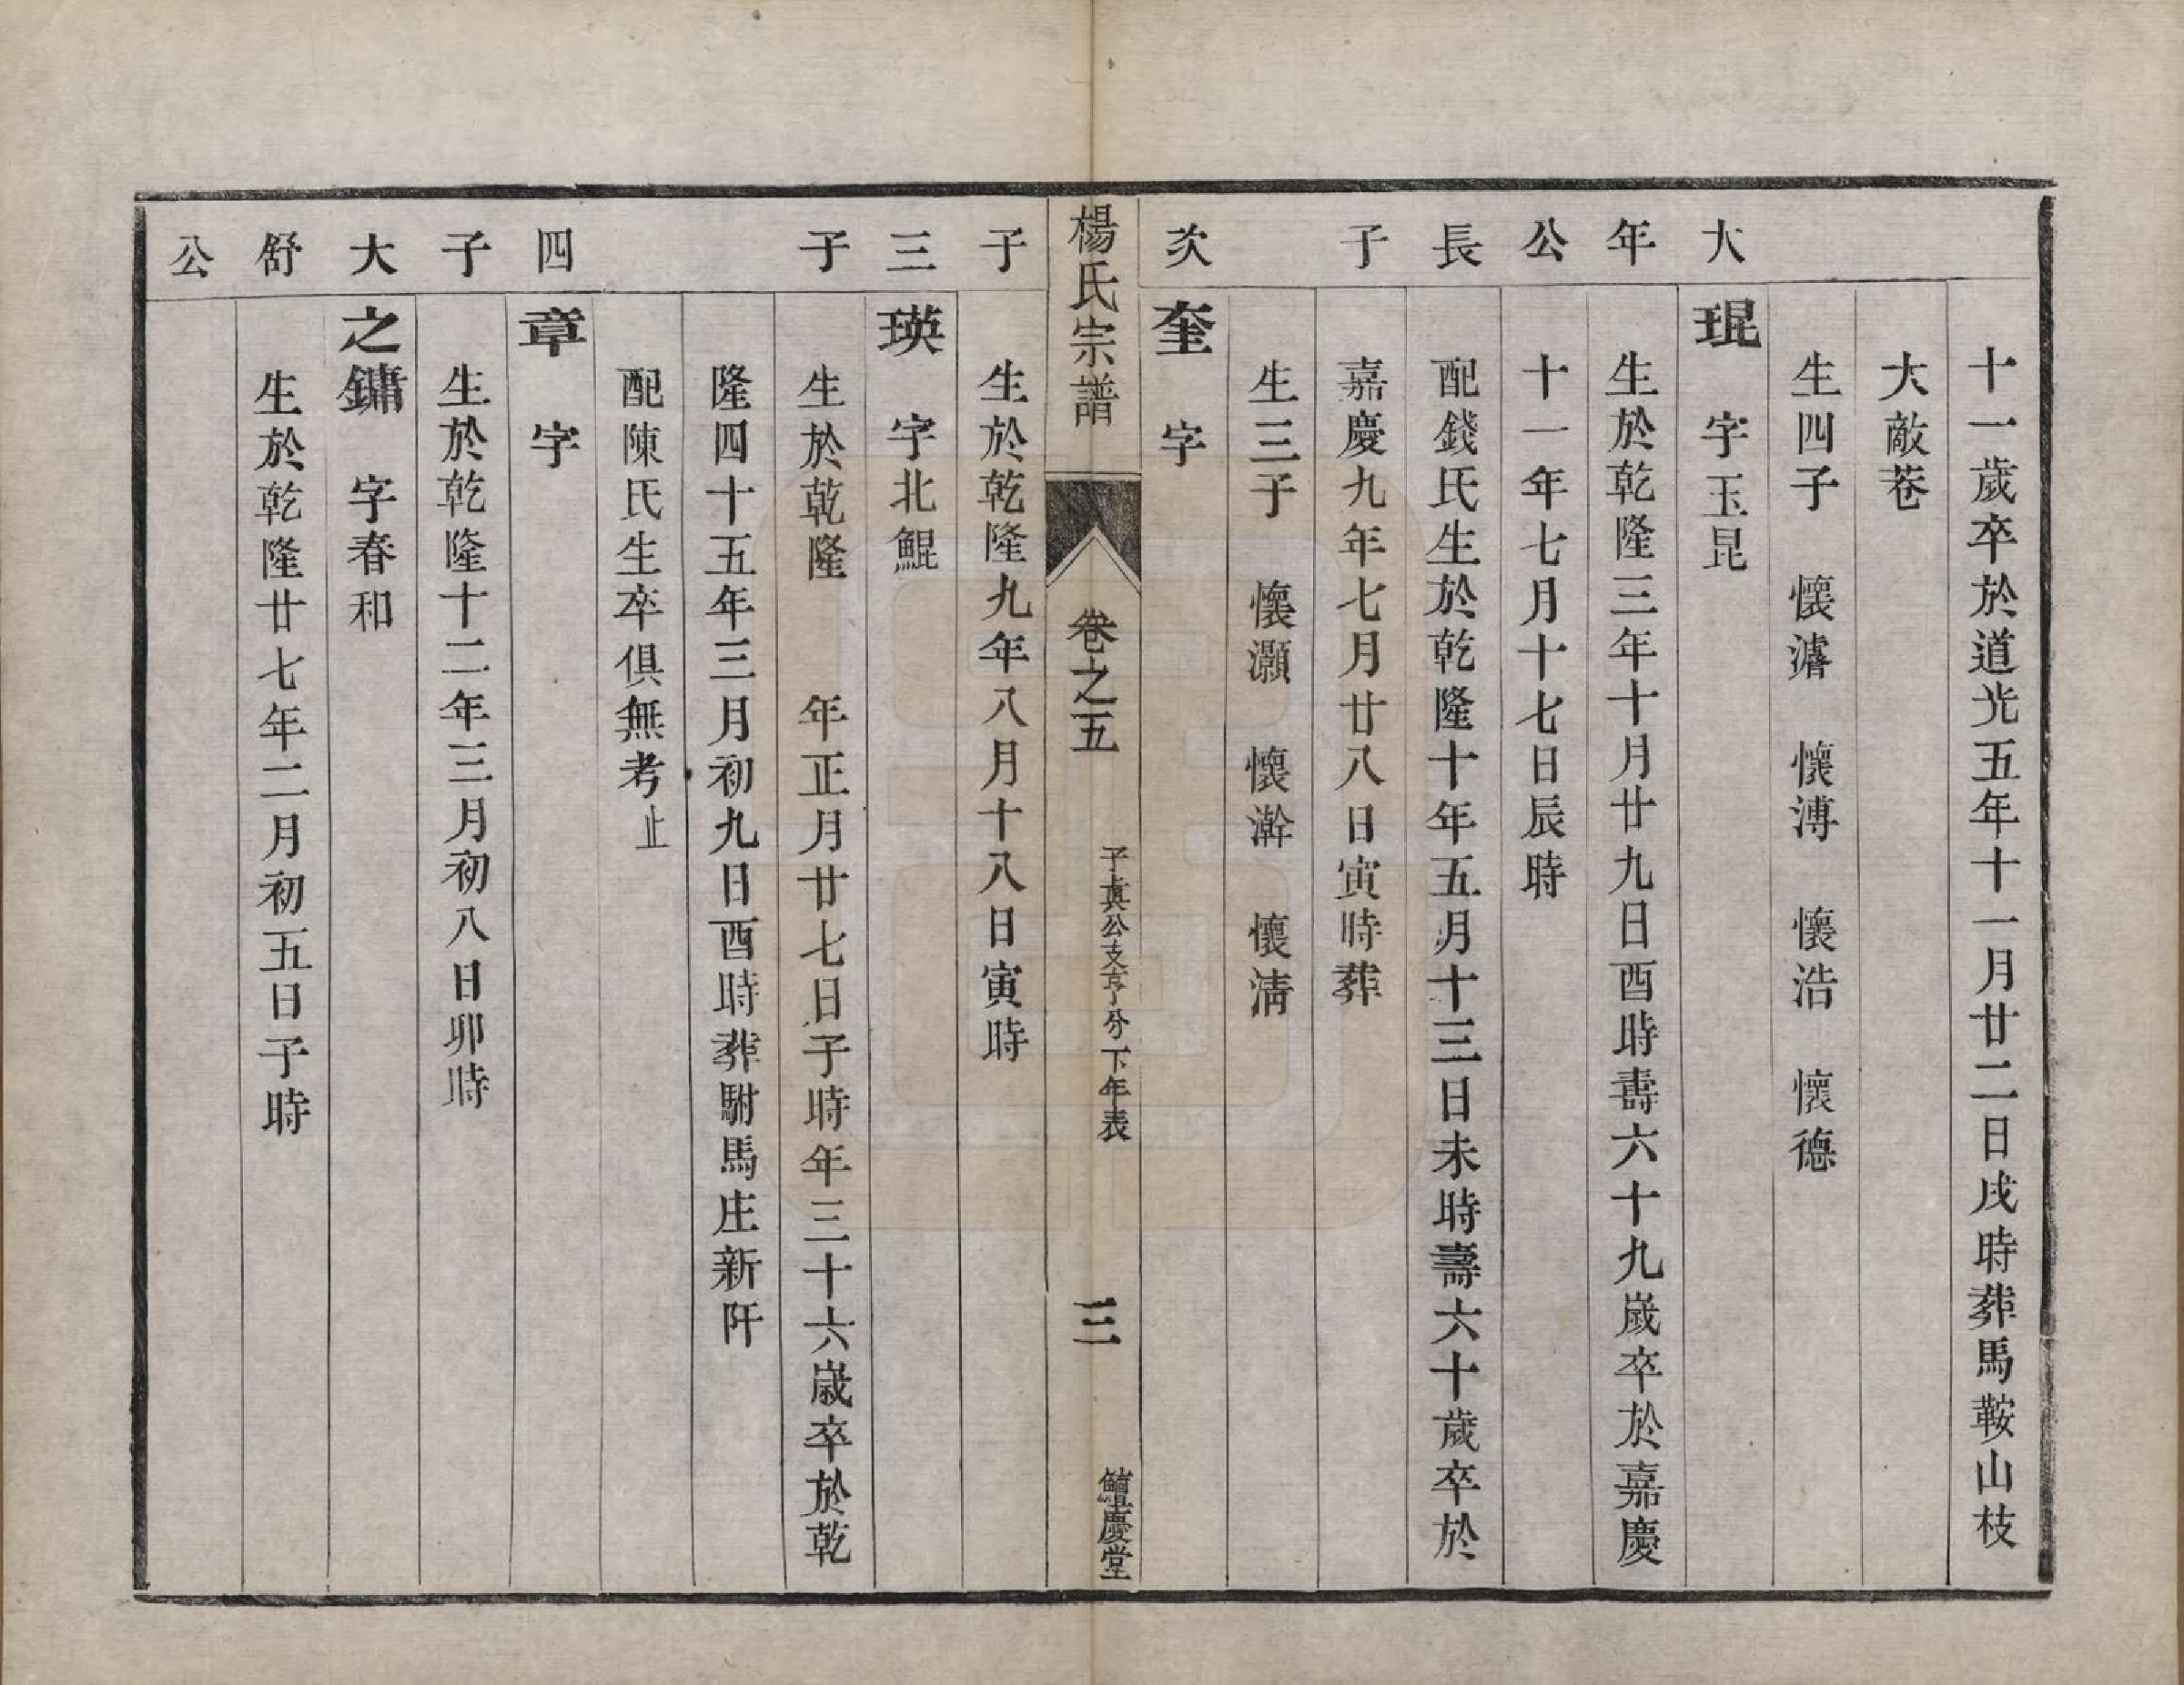 十一歲卒於道光五年十一月廿二日戌時葬馬鞍山枝
大敵巷
生四子　懷濬　懷溥　懷浩　懷德
大
琨　字玉昆
年
生於乾隆三年十月廿九日酉時壽六十九歲卒於嘉慶
公
十一年七月十七日辰時
長
配錢氏生於乾隆十年五月十三日未時壽六十歲卒於
子
嘉慶九年七月廿八日寅時葬
生三子　懷灝　懷澣　懷淸
次
奎　字
楊氏宗譜
卷之五
子眞公支亨分下年表
三
鱣慶堂
子
生於乾隆九年八月十八日寅時
三
瑛　字北鯤
子
生於乾隆　年正月廿七日子時年三十六歲卒於乾
隆四十五年三月初九日酉時葬駙馬庄新阡
配陳氏生卒俱無考止
四
章　字
子
生於乾隆十二年三月初八日卯時
大
之鏞　字春和
舒
生於乾隆廿七年二月初五日子時
公